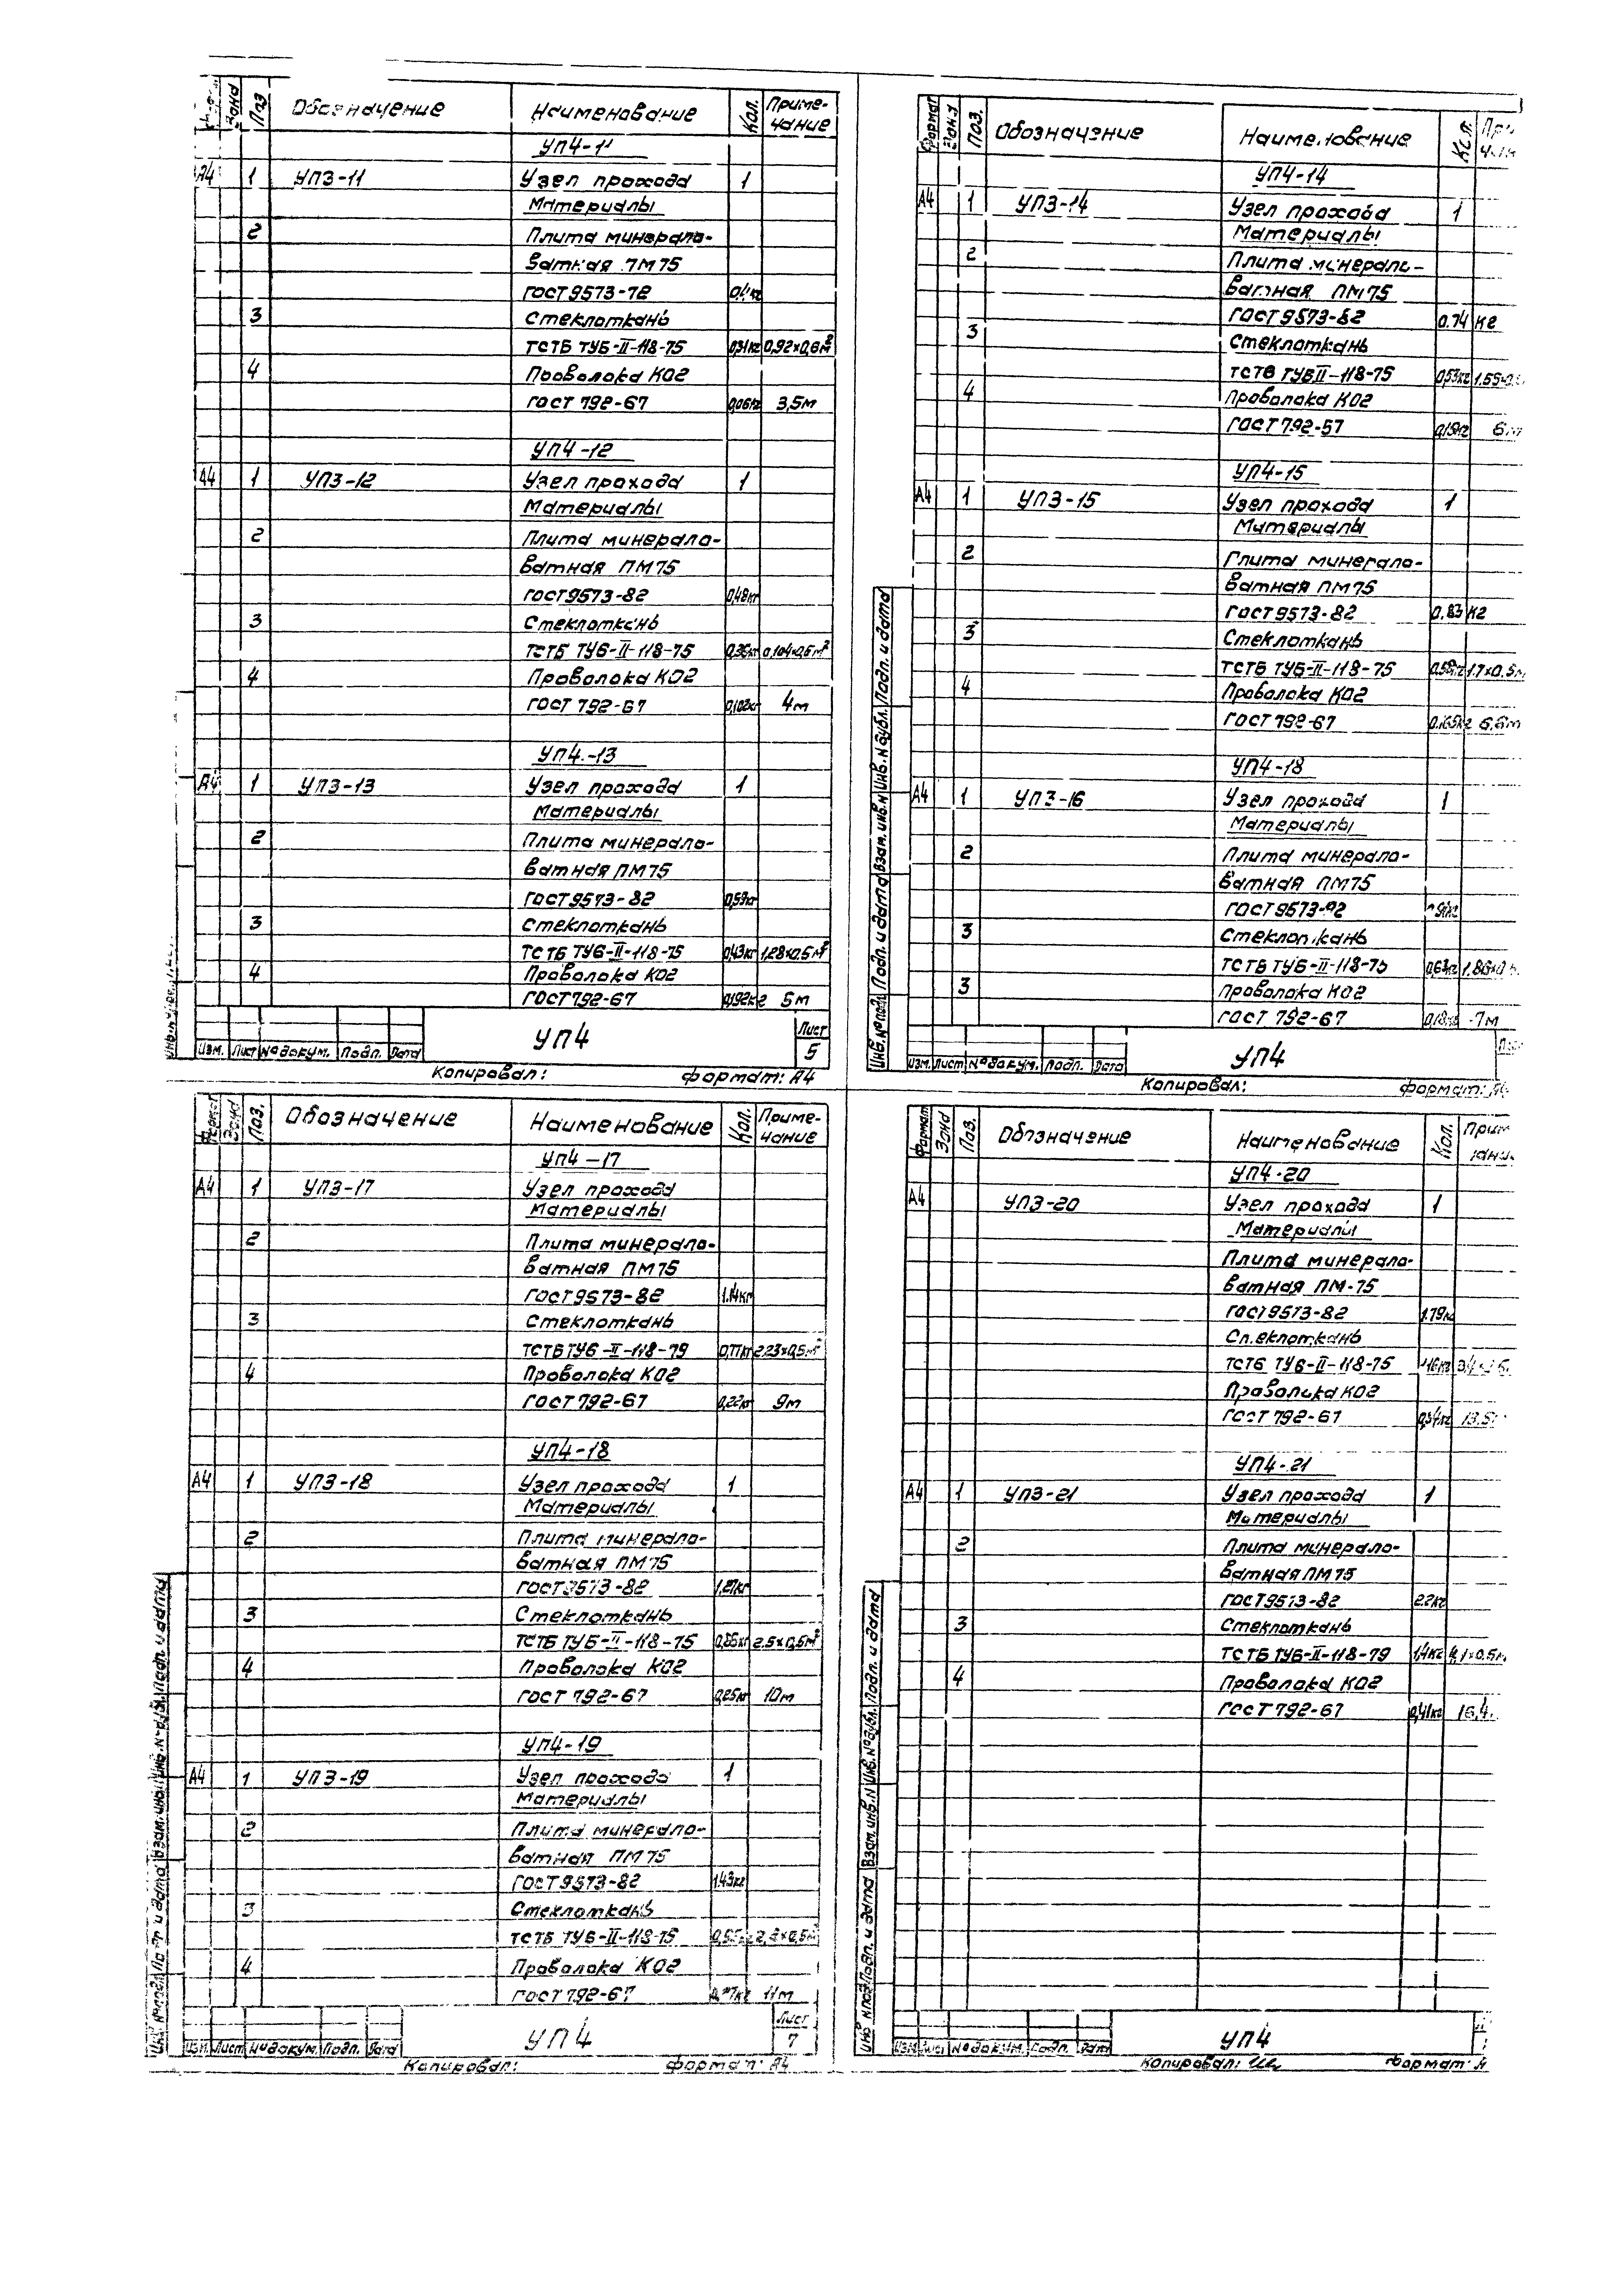 Зона Поз Обозначение Наименование Кол. Приме-
чание
УП4-11
А4 1 УП3-11 Узел прохода 1
Материалы
2 Плита минерало-
ватная ПМ75
ГОСТ 9573-72
3 Стеклоткань
ТСТБ ТУ6-II-118-75 0,31кг 0,92×0,6м²
4 Проволока КО2
ГОСТ 792-67 0,06кг 3,5м
УП4-12
А4 1 УП3-12 Узел прохода 1
Материалы
2 Плита минерало-
ватная ПМ75
ГОСТ 9573-82 0,48кг
3 Стеклоткань
ТСТБ ТУ6-II-118-75 0,36кг 0,104×0,6м²
4 Проволока КО2
ГОСТ 792-67 0,102кг 4м
УП4-13
А4 1 УП3-13 Узел прохода 1
Материалы
2 Плита минерало-
ватная ПМ75
ГОСТ 9573-82 0,59кг
3 Стеклоткань
ТСТБ ТУ6-II-118-75 0,43кг 1,28×0,5м²
4 Проволока КО2
ГОСТ 792-67 0,192кг 5м
Изм. Лист № докум. Подп. Дата УП4 Лист
5
Копировал: формат: А4
Формат Зона Поз. Обозначение Наименование Кол.
УП4-14
А4 1 УП3-14 Узел прохода 1
Материалы
2 Плита минерало-
ватная ПМ75
ГОСТ 9573-82 0.74 кг
3 Стеклоткань
ТСТБ ТУ6II-118-75 0,53кг
4 Проволока КО2
ГОСТ 792-57 6м
УП4-15
А4 1 УП3-15 Узел прохода 1
Материалы
2 Плита минерало-
ватная ПМ75
ГОСТ 9573-82 0.83 кг
3 Стеклоткань
ТСТБ ТУ6-II-118-75 0,58кг 1.7×0.5м
4 Проволока КО2
ГОСТ 792-67 0.165кг 6,6м
УП4-18
А4 1 УП3-16 Узел прохода 1
Материалы
2 Плита минерало-
ватная ПМ75
ГОСТ 9573-
3 Стеклоткань
ТСТБ ТУ6-II-118-75 0,63кг
3 Проволока КО2
ГОСТ 792-67 7м
Инв. № подл. Подп. и дата Взам. инв. N Инв. N дубл. Подп. и дата
Изм. Лист № докум. Подп. Дата УП4
Копировал: формат:
Формат Зона Поз. Обозначение Наименование Кол. Приме-
чание
УП4-17
А4 1 УП3-17 Узел прохода
Материалы
2 Плита минерало-
ватная ПМ75
ГОСТ 9573-82 1.14кг
3 Стеклоткань
ТСТБ ТУ6-II-118-79 0,77кг 2.23×0,5м²
4 Проволока КО2
ГОСТ 792-67 0,22кг 9м
УП4-18
А4 1 УП3-18 Узел прохода 1
Материалы
2 Плита минерало-
ватная ПМ75
ГОСТ 9573-82 1,27кг
3 Стеклоткань
ТСТБ ТУ6-II-118-75 0,85кг 2,5×0,5м²
4 Проволока КО2
ГОСТ 792-67 0,25кг 10м
УП4-19
А4 1 УП3-19 Узел прохода 1
Материалы
2 Плита минерало-
ватная ПМ75
ГОСТ 9573-82 1.43кг
3 Стеклоткань
ТСТБ ТУ6-II-118-75
4 Проволока КО2
ГОСТ 792-67 11м
Изм. Лист № докум. Подп. Дата УП4 Лист
7
Копировал: формат: А4
Формат Зона Поз. Обозначение Наименование Кол.
УП4-20
А4 УП3-20 Узел прохода 1
Материалы
Плита минерало-
ватная ПМ-75
ГОСТ 9573-82 1.79кг
Стеклоткань
ТСТБ ТУ6-II-118-75
Проволока КО2
ГОСТ 792-67 0,34кг
УП4-21
А4 1 УП3-21 Узел прохода 1
Материалы
2 Плита минерало-
ватная ПМ75
ГОСТ 9573-82 22кг
3 Стеклоткань
ТСТБ ТУ6-II-118-79 1,4кг 4,1×0.5м
4 Проволока КО2
ГОСТ 792-67 0,41кг 16,4
Подп. и дата Взам. инв. N Инв. № дубл. Подп. и дата
Изм. Лист № докум. Подп. Дата УП4
Копировал: формат: